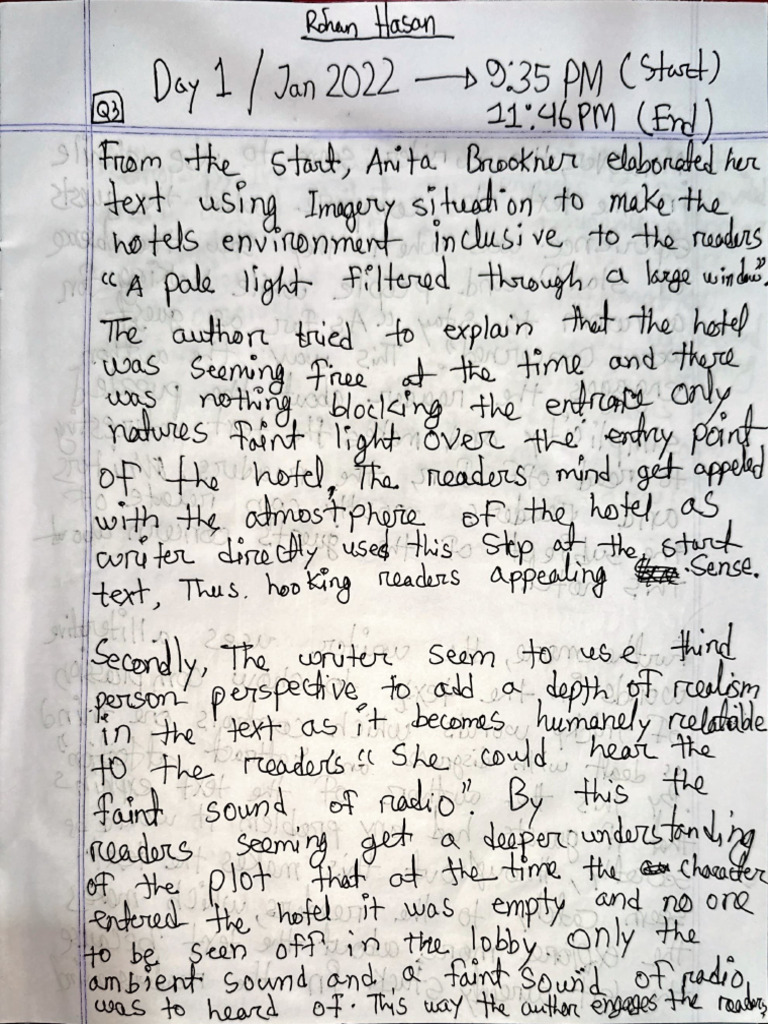 Rohan Hasan
Day 1 / Jan 2022 → 9:35 PM (Start)
Q3 11:46PM (End)
From the start, Anita Brookner elaborated her
text using Imagery situation to make the
hotels environment inclusive to the readers
"A pale light filtered through a large window".
The author tried to explain that the hotel
was seeming free at the time and there
was nothing blocking the entrance only
natures faint light over the entry point
of the hotel. The readers mind get appeled
with the atmostphere of the hotel as
writer directly used this step at the start
text, Thus. hooking readers appealing sense.
Secondly, The writer seem to use third
person perspective to add a depth of realism
in the text as it becomes humanely relatable
to the readers "She could hear the
faint sound of radio". By this the
readers seeming get a deeper understanding
of the plot that at the time the character
entered the hotel it was empty and no one
to be seen off in the lobby only the
ambient sound and a faint sound of radio
was to heard of. This way the author engages the readers,